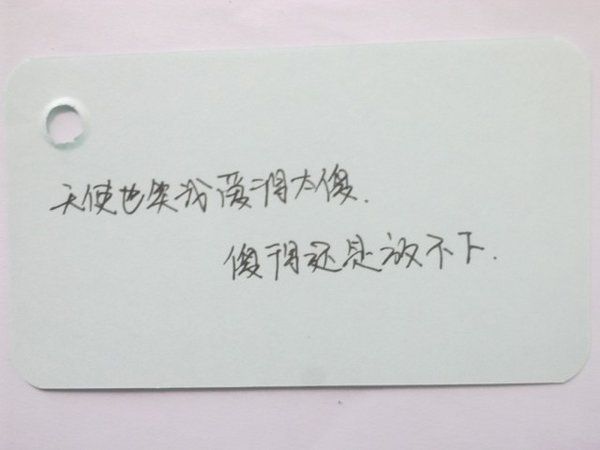 天使也笑我爱得太傻.
傻得还是放不下.